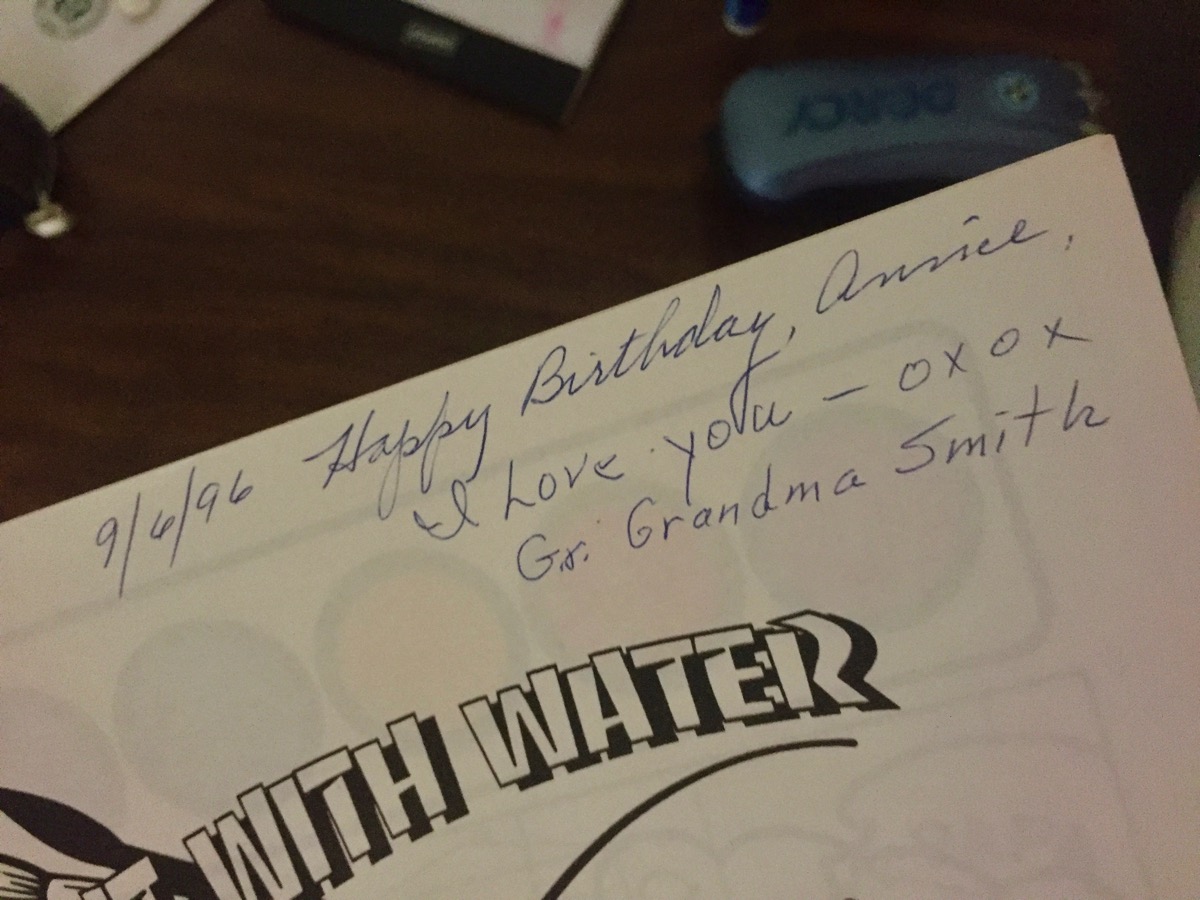 DERCY
9/6/96 Happy Birthday, Annie,
I Love you - oxox
Gr. Grandma Smith
WITH WATER